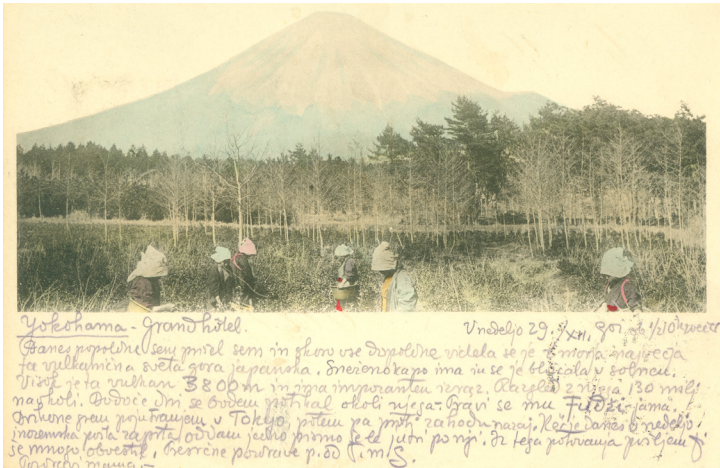 Yokohama - Grand hôtel. V nedeljo 29. XII. 901 ob 1/2 10h zvečer
Danes popoldne sem prišel sem in skoro vse dopoldne videla se je z morja največja
ta vulkanična sveta gora japanska. Sneženo kapo ima in se je blískala v solncu.
Visok je ta vulkan 3800 m in ima impozanten izraz. Razgled z njega 130 milj
naokoli. Bodoče dni se bodem potikal okoli njega. Pravi se mu Fudži-jama.
grem pojutranjem v Tokyo potem pa proti zahodu nazaj. Ker je danes nedelja
inozemska pošta zaprta oddam jedno pismo še le jutri popoldne. Iz tega potovanja pošljem ji
še mnogo obvestil, Presrčne pozdrave p. so j. m. S.
Pozdravi mamo -